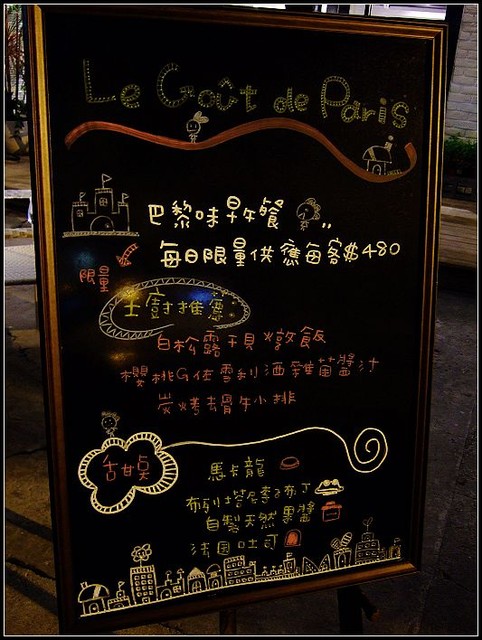 Le Goût de Paris
巴黎味早午餐
每日限量供應每客$480
限量
主廚推薦
白松露干貝燉飯
櫻桃G佐雪利酒雞菌醬汁
炭烤去骨牛小排
甜點
馬卡龍
布列塔尼李子布丁
自製天然果醬
法國吐司